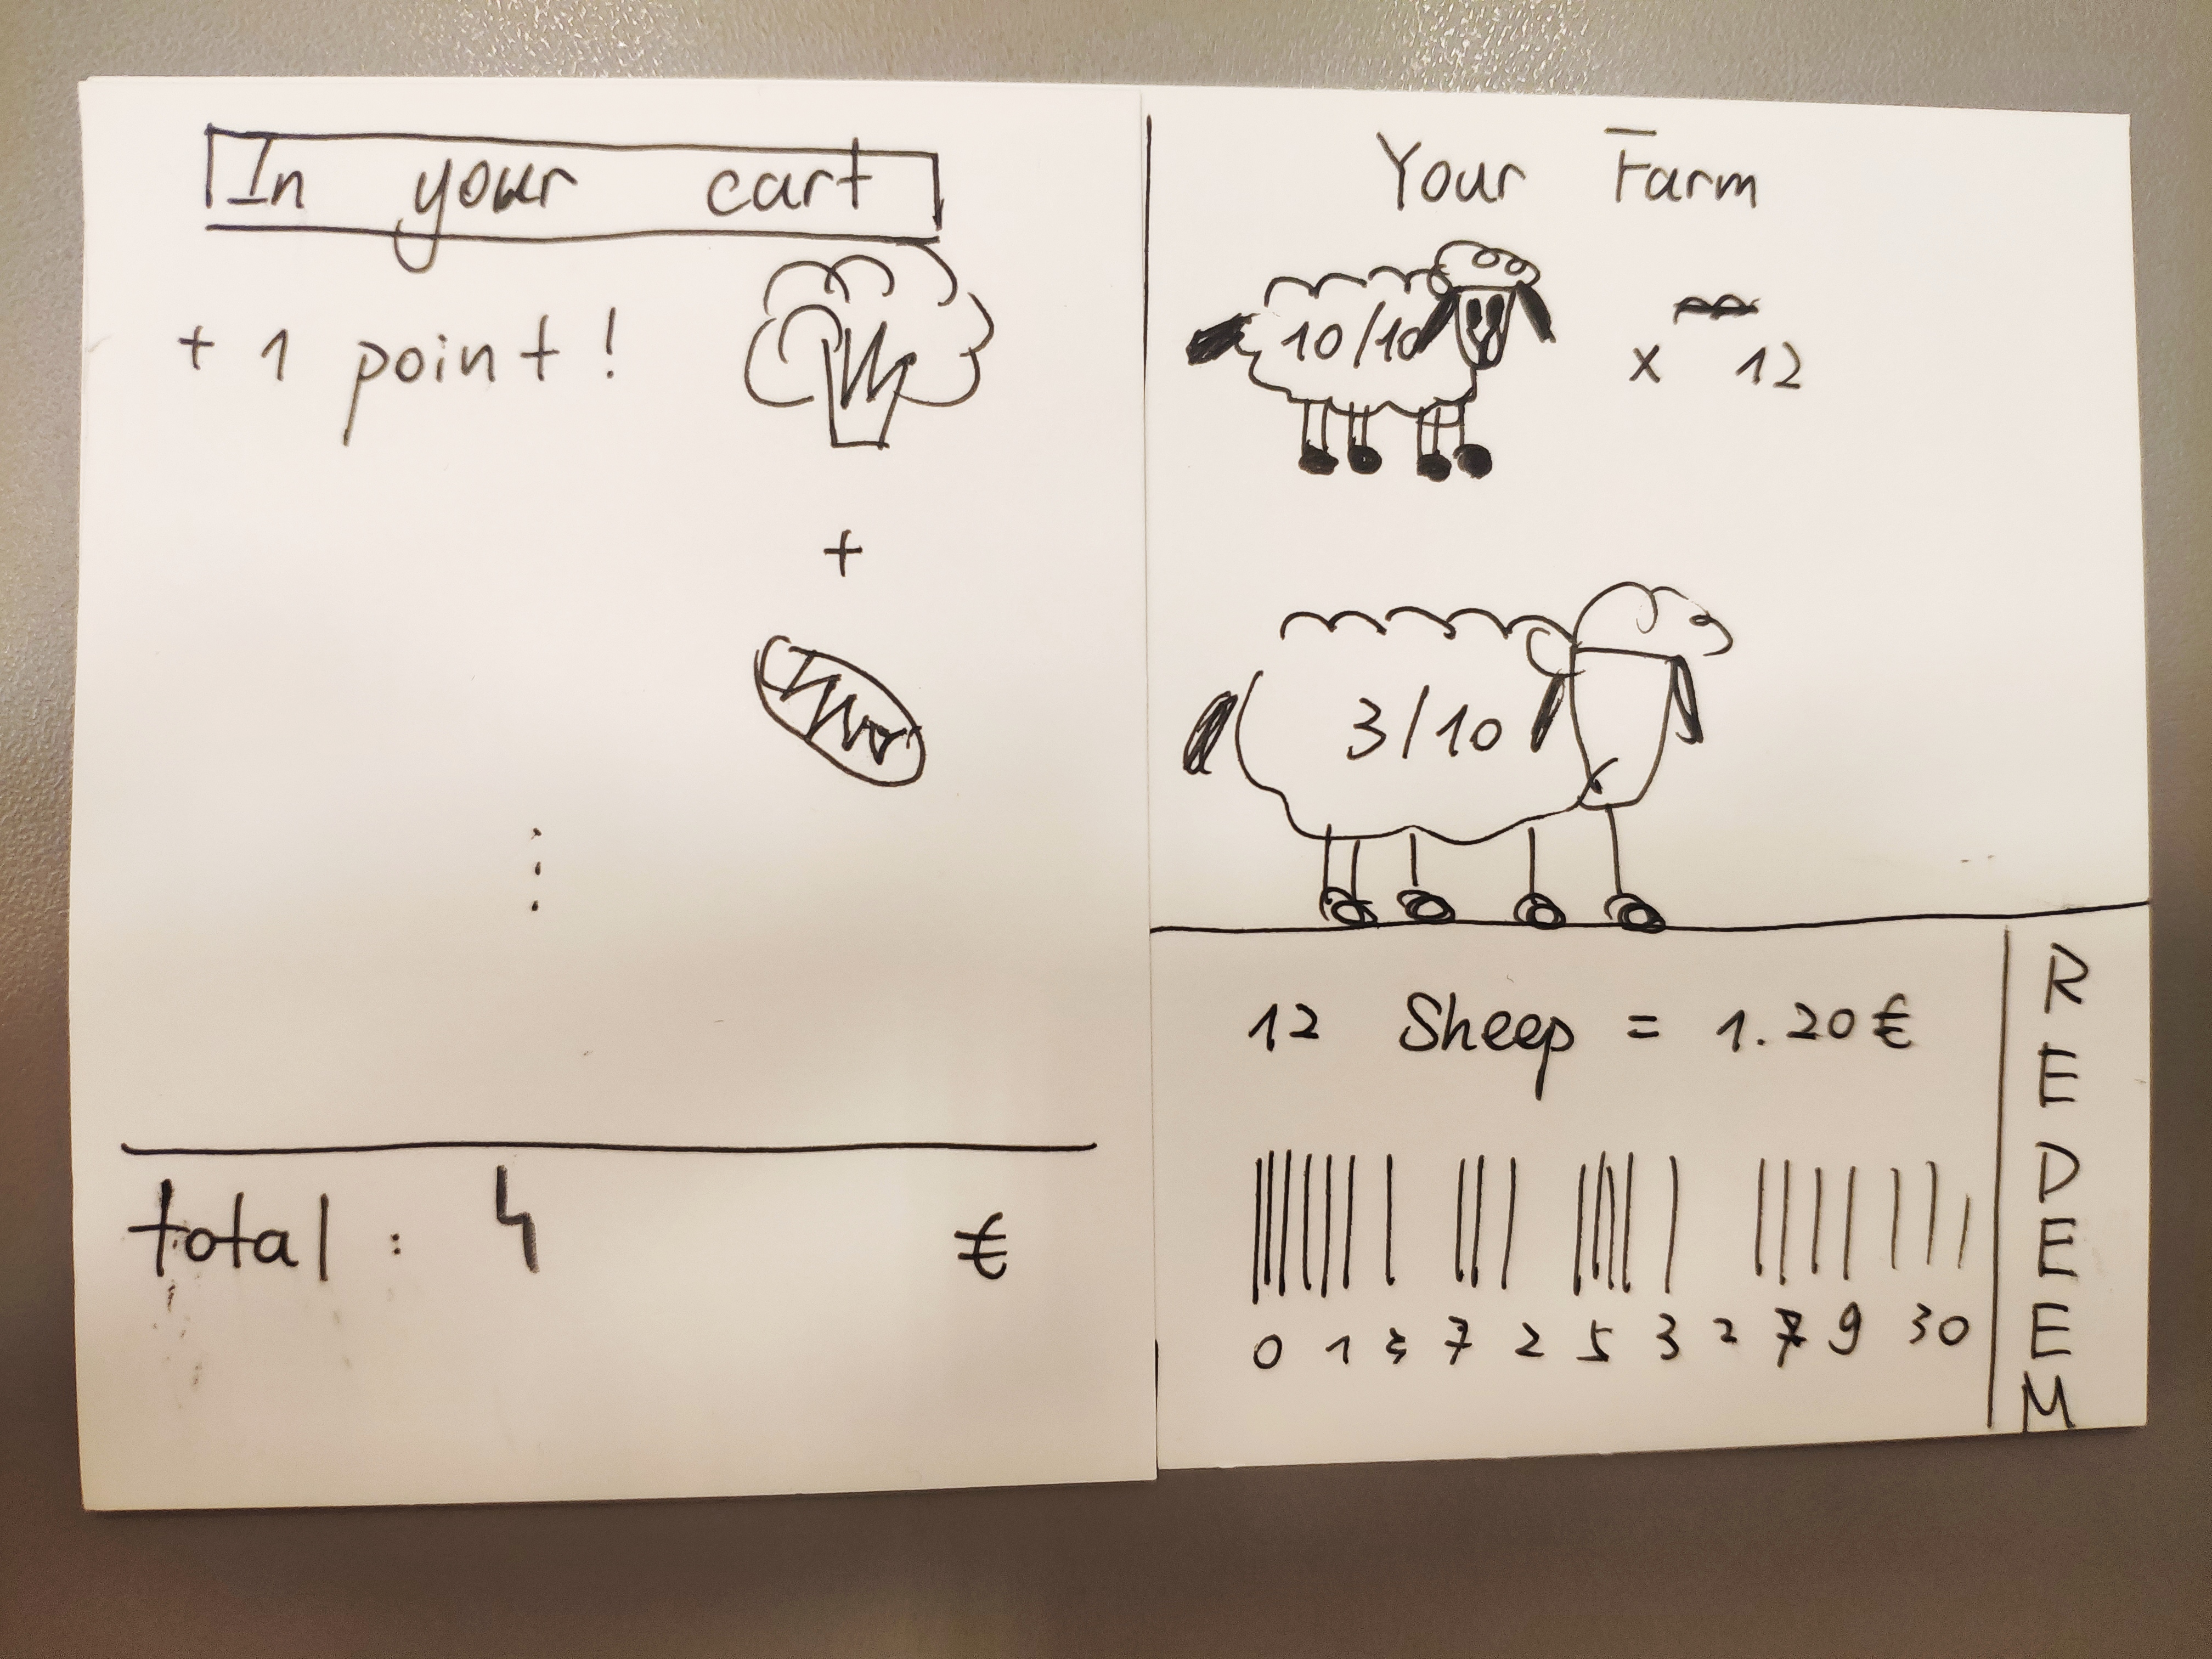 In your cart
+ 1 point!
+
total : 4 €
Your Farm
10/10
x 12
3/10
12 Sheep = 1.20€
0 1 3 7 2 5 3 2 7 9 30
REDEEM